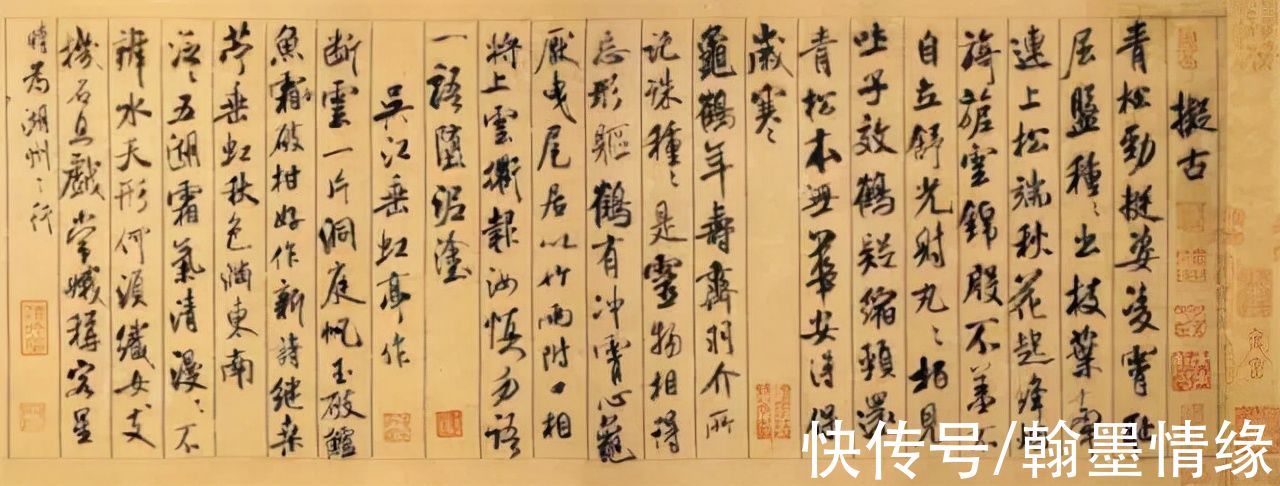 擬古
青松勁挺姿凌霄恥
屈盤種々出枝葉牽
連上松端秋花起絳烟
旖旎雲錦殷不羞不
自立舒光射丸々柏見
吐子效鶴疑縮頸還
青松本無華安得保
歲寒
龜鶴年壽齊羽介所
託殊種々是靈物相得
忘形軀鶴有冲霄心龜
厭曳尾居以竹兩附口相
將上雲衢報汝慎勿語
一語墮泥塗
吳江垂虹亭作
断雲一片洞庭帆玉破鱸
魚霜破柑好作新詩継桑
苧垂虹秋色滿東南
泛々五湖霜氣清漫々不
辨水天形何須織女支
機石且戲常娥稱客星
時為湖州之行
快传号/翰墨情缘